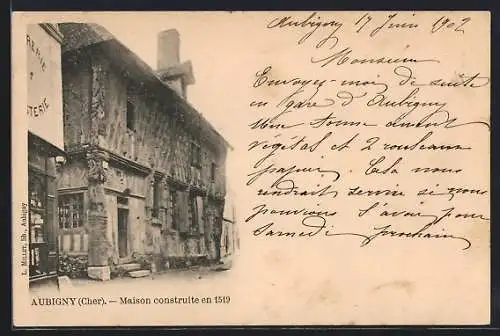 Aubigny 17 Juin 1902
Monsieur
Envoyez-moi de suite
en gare d'Aubigny
Une tonne
végétal et 2 rouleaux
papier. Cela nous
rendrait service si nous
pouvions l'avoir pour
Samedi prochain
TERIE
L. MILLET, lib., Aubigny
AUBIGNY (Cher). — Maison construite en 1519